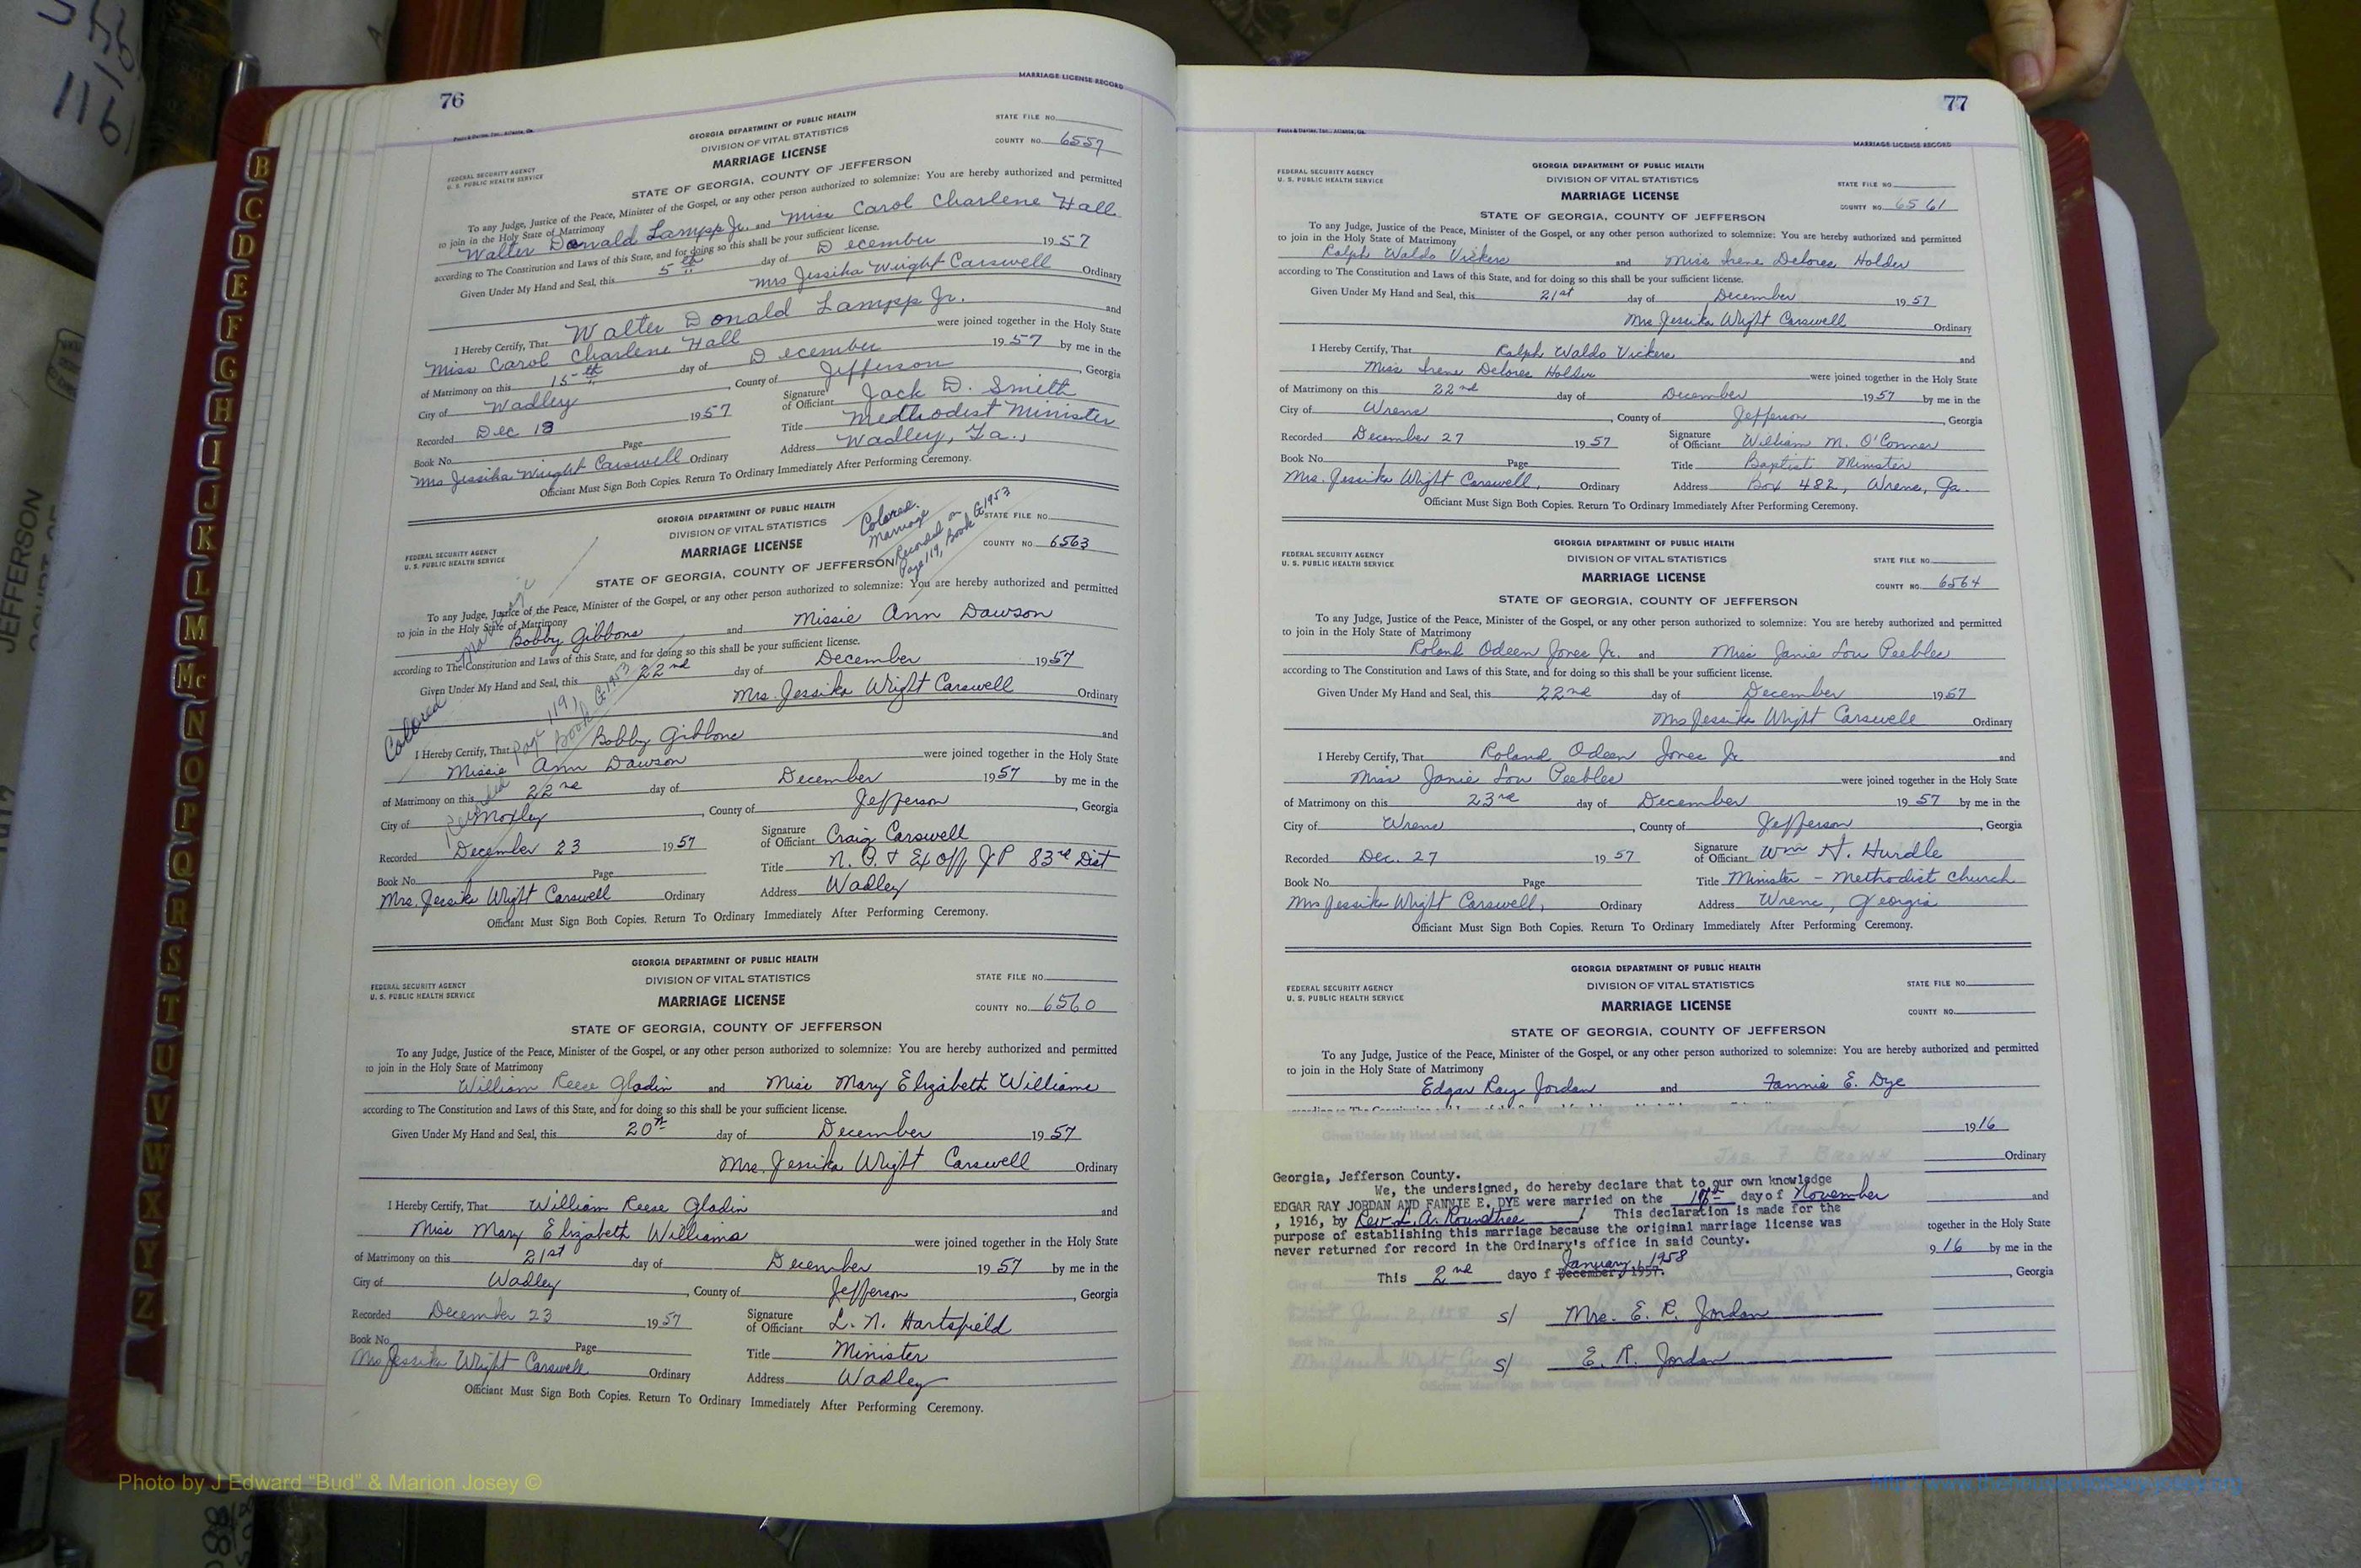 76
MARRIAGE LICENSE RECORD
Foote & Davies, Inc., Atlanta, Ga.
GEORGIA DEPARTMENT OF PUBLIC HEALTH
DIVISION OF VITAL STATISTICS
MARRIAGE LICENSE
STATE FILE NO.
COUNTY NO. 6557
FEDERAL SECURITY AGENCY
U. S. PUBLIC HEALTH SERVICE
STATE OF GEORGIA, COUNTY OF JEFFERSON
To any Judge, Justice of the Peace, Minister of the Gospel, or any other person authorized to solemnize: You are hereby authorized and permitted
to join in the Holy State of Matrimony
Walter Donald Lampp Jr. and Miss Carol Charlene Hall
according to The Constitution and Laws of this State, and for doing so this shall be your sufficient license.
Given Under My Hand and Seal, this 5th day of December 1957
Mrs Jessika Wright Carswell Ordinary
I Hereby Certify, That Walter Donald Lampp Jr. and
Miss Carol Charlene Hall were joined together in the Holy State
of Matrimony on this 15th day of December 1957 by me in the
City of Wadley, County of Jefferson, Georgia
Recorded Dec 18 1957 Signature of Officiant Jack D. Smith
Title Methodist Minister
Book No. Page Address Wadley, Ga.,
Mrs Jessika Wright Carswell Ordinary
Officiant Must Sign Both Copies. Return To Ordinary Immediately After Performing Ceremony.
GEORGIA DEPARTMENT OF PUBLIC HEALTH
DIVISION OF VITAL STATISTICS
MARRIAGE LICENSE
Colored
Marriage
Recorded on
Page 119, Book G 1953
STATE FILE NO.
COUNTY NO. 6563
FEDERAL SECURITY AGENCY
U. S. PUBLIC HEALTH SERVICE
STATE OF GEORGIA, COUNTY OF JEFFERSON
To any Judge, Justice of the Peace, Minister of the Gospel, or any other person authorized to solemnize: You are hereby authorized and permitted
to join in the Holy State of Matrimony
Bobby Gibbons and Missie Ann Dawson
according to The Constitution and Laws of this State, and for doing so this shall be your sufficient license.
Given Under My Hand and Seal, this 22nd day of December 1957
Mrs. Jessika Wright Carswell Ordinary
Colored Marriage
Recorded Page 119, Book G 1953
I Hereby Certify, That Bobby Gibbons and
Missie Ann Dawson were joined together in the Holy State
of Matrimony on this 22nd day of December 1957 by me in the
City of Moxley, County of Jefferson, Georgia
Recorded December 23 1957 Signature of Officiant Craig Carswell
Title N. P. & Ex Off J P 83rd Dist
Book No. Page Address Wadley
Mrs. Jessika Wright Carswell Ordinary
Officiant Must Sign Both Copies. Return To Ordinary Immediately After Performing Ceremony.
GEORGIA DEPARTMENT OF PUBLIC HEALTH
DIVISION OF VITAL STATISTICS
MARRIAGE LICENSE
STATE FILE NO.
COUNTY NO. 6560
FEDERAL SECURITY AGENCY
U. S. PUBLIC HEALTH SERVICE
STATE OF GEORGIA, COUNTY OF JEFFERSON
To any Judge, Justice of the Peace, Minister of the Gospel, or any other person authorized to solemnize: You are hereby authorized and permitted
to join in the Holy State of Matrimony
William Reese Gladin and Miss Mary Elizabeth Williams
according to The Constitution and Laws of this State, and for doing so this shall be your sufficient license.
Given Under My Hand and Seal, this 20th day of December 1957
Mrs. Jessika Wright Carswell Ordinary
I Hereby Certify, That William Reese Gladin and
Miss Mary Elizabeth Williams were joined together in the Holy State
of Matrimony on this 21st day of December 1957 by me in the
City of Wadley, County of Jefferson, Georgia
Recorded December 23 1957 Signature of Officiant L. N. Hartsfield
Book No. Page Title Minister
Mrs Jessika Wright Carswell Ordinary Address Wadley
Officiant Must Sign Both Copies. Return To Ordinary Immediately After Performing Ceremony.
77
MARRIAGE LICENSE RECORD
Foote & Davies, Inc., Atlanta, Ga.
GEORGIA DEPARTMENT OF PUBLIC HEALTH
DIVISION OF VITAL STATISTICS
MARRIAGE LICENSE
STATE FILE NO.
COUNTY NO. 6561
FEDERAL SECURITY AGENCY
U. S. PUBLIC HEALTH SERVICE
STATE OF GEORGIA, COUNTY OF JEFFERSON
To any Judge, Justice of the Peace, Minister of the Gospel, or any other person authorized to solemnize: You are hereby authorized and permitted
to join in the Holy State of Matrimony
Ralph Waldo Vickers and Miss Irene Delores Holder
according to The Constitution and Laws of this State, and for doing so this shall be your sufficient license.
Given Under My Hand and Seal, this 21st day of December 1957
Mrs Jessika Wright Carswell Ordinary
I Hereby Certify, That Ralph Waldo Vickers and
Miss Irene Delores Holder were joined together in the Holy State
of Matrimony on this 22nd day of December 1957 by me in the
City of Wrens, County of Jefferson, Georgia
Recorded December 27 1957 Signature of Officiant William M. O'Conner
Book No. Page Title Baptist Minister
Mrs. Jessika Wright Carswell, Ordinary Address Box 482, Wrens, Ga.
Officiant Must Sign Both Copies. Return To Ordinary Immediately After Performing Ceremony.
GEORGIA DEPARTMENT OF PUBLIC HEALTH
DIVISION OF VITAL STATISTICS
MARRIAGE LICENSE
STATE FILE NO.
COUNTY NO. 6564
FEDERAL SECURITY AGENCY
U. S. PUBLIC HEALTH SERVICE
STATE OF GEORGIA, COUNTY OF JEFFERSON
To any Judge, Justice of the Peace, Minister of the Gospel, or any other person authorized to solemnize: You are hereby authorized and permitted
to join in the Holy State of Matrimony
Roland Odeen Jones Jr. and Miss Janie Lou Peebles
according to The Constitution and Laws of this State, and for doing so this shall be your sufficient license.
Given Under My Hand and Seal, this 22nd day of December 1957
Mrs Jessika Wright Carswell Ordinary
I Hereby Certify, That Roland Odeen Jones Jr and
Miss Janie Lou Peebles were joined together in the Holy State
of Matrimony on this 23rd day of December 1957 by me in the
City of Wrens, County of Jefferson, Georgia
Recorded Dec. 27 1957 Signature of Officiant Wm H. Hurdle
Book No. Page Title Minister - Methodist Church
Mrs Jessika Wright Carswell, Ordinary Address Wrens, Georgia
Officiant Must Sign Both Copies. Return To Ordinary Immediately After Performing Ceremony.
GEORGIA DEPARTMENT OF PUBLIC HEALTH
DIVISION OF VITAL STATISTICS
MARRIAGE LICENSE
STATE FILE NO.
COUNTY NO.
FEDERAL SECURITY AGENCY
U. S. PUBLIC HEALTH SERVICE
STATE OF GEORGIA, COUNTY OF JEFFERSON
To any Judge, Justice of the Peace, Minister of the Gospel, or any other person authorized to solemnize: You are hereby authorized and permitted
to join in the Holy State of Matrimony
Edgar Ray Jordan and Fannie E. Dye
Given Under My Hand and Seal, this 17th day of November 1916
Jas F Brown Ordinary
and
together in the Holy State
9 16 by me in the
, Georgia
Georgia, Jefferson County.
We, the undersigned, do hereby declare that to our own knowledge
EDGAR RAY JORDAN AND FANNIE E. DYE were married on the day of November
, 1916, by Rev. L. A. Roundtree. This declaration is made for the
purpose of establishing this marriage because the original marriage license was
never returned for record in the Ordinary's office in said County.
January, 1958
This 2nd dayo f December, 1957.
s/ Mrs. E. R. Jordan
s/ E. R. Jordan
B
C
D
E
F
G
H
I
J
K
L
M
Mc
N
O
P
Q
R
S
T
U
V
W
X
Y
Z
JEFFERSON
Photo by J Edward "Bud" & Marion Josey ©